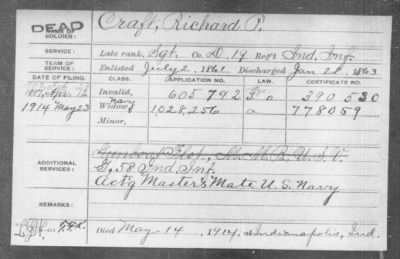 DEAD
NAME OF SOLDIER:
Craft, Richard P.
SERVICE:
Late rank, Sgt. Co. D, 19 Reg't Ind. Inf.
TERM OF SERVICE:
Enlisted July 2, 1861 Discharged Jan 21, 1863
DATE OF FILING. CLASS. APPLICATION NO. LAW. CERTIFICATE NO.
Invalid, 605 792 390 530
Navy
1914 May 23 Widow, 1,028,256 a 778059
Minor,
ADDITIONAL SERVICES:
G, 58 Ind. Inf.
Act'g Master's Mate U.S. Navy
REMARKS:
Died May 14, 1914, at Indianapolis, Ind.